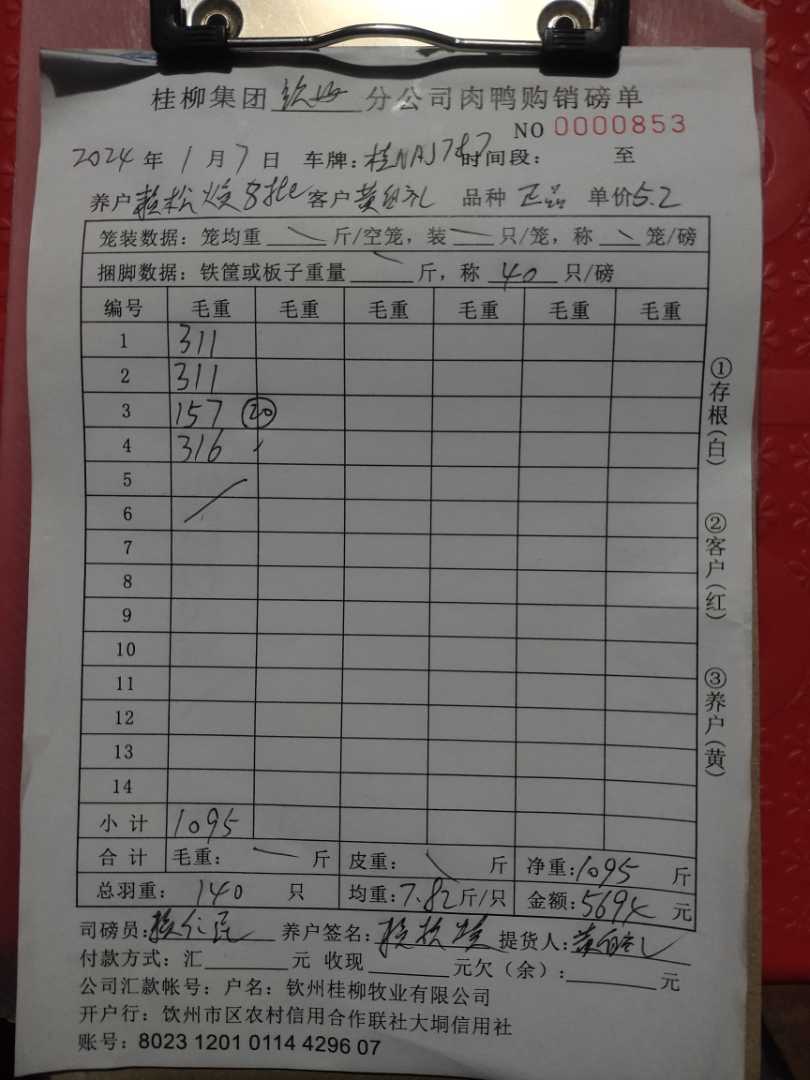 桂柳集团 钦州 分公司肉鸭购销磅单
NO 0000853
2024 年 1 月 7 日 车牌：桂NAJ767 时间段： 至
养户 赖松 8批 客户 黄 礼 品种 正品 单价 5.2
笼装数据：笼均重 斤/空笼，装 只/笼，称 笼/磅
捆脚数据：铁筐或板子重量 斤，称 40 只/磅
编号 毛重 毛重 毛重 毛重 毛重 毛重
1 311
2 311
3 157 20
4 316
5
6
7
8
9
10
11
12
13
14
小 计 1095
合 计 毛重： 斤 皮重： 斤 净重：1095 斤
总羽重： 140 只 均重：7.82 斤/只 金额：5694 元
司磅员： 养户签名： 松 提货人：黄 礼
付款方式：汇 元 收现 元欠（余）： 元
公司汇款帐号：户名：钦州桂柳牧业有限公司
开户行：钦州市区农村信用合作联社大垌信用社
账号：8023 1201 0114 4296 07
①存根（白）
②客户（红）
③养户（黄）